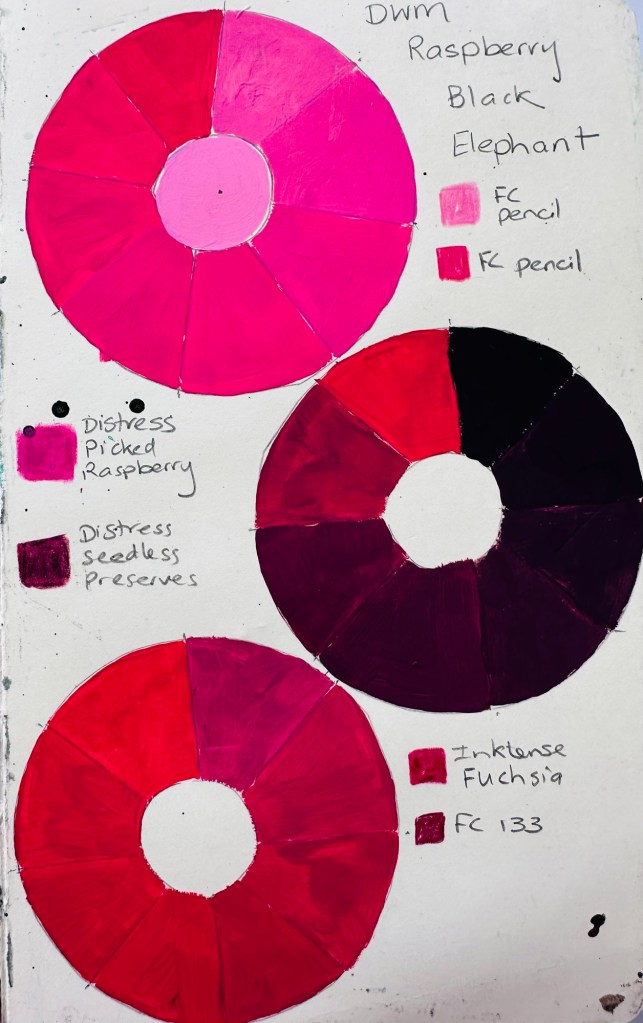 DWM
Raspberry
Black
Elephant
FC
pencil
FC pencil
Distress
Picked
Raspberry
Distress
seedless
Preserves
Inktense
Fuchsia
FC 133